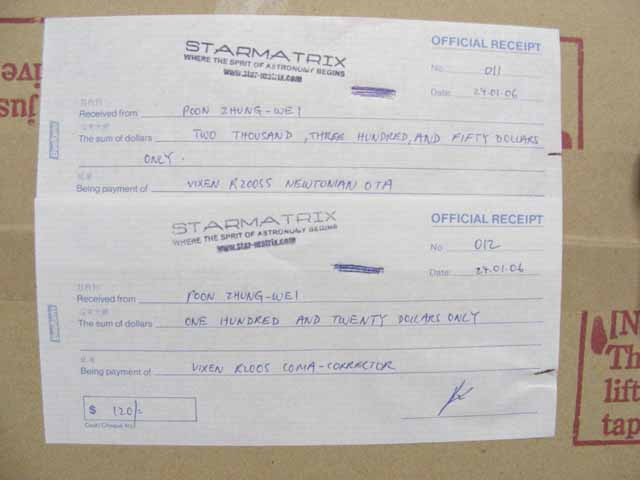 STARMATRIX
WHERE THE SPRIT OF ASTRONOMY BEGINS
www.star-matrix.com
OFFICIAL RECEIPT
No. 011
Date: 24.01.06
Received from POON ZHUNG-WEI
The sum of dollars TWO THOUSAND, THREE HUNDRED, AND FIFTY DOLLARS
ONLY.
Being payment of VIXEN R200SS NEWTONIAN OTA
STARMATRIX
WHERE THE SPRIT OF ASTRONOMY BEGINS
www.star-matrix.com
OFFICIAL RECEIPT
No. 012
Date: 24.01.06
Received from POON ZHUNG-WEI
The sum of dollars ONE HUNDRED AND TWENTY DOLLARS ONLY
Being payment of VIXEN R200S COMA-CORRECTOR
$ 120/-
Cash/Cheque No.
lift
tap